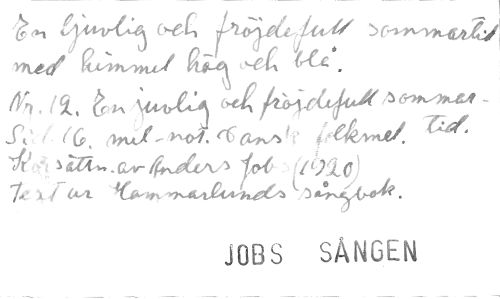 En ljuvlig och fröjdefull sommartid
med himmel hög och blå.
Nr. 12. En juvlig och fröjdefull sommar-
Sid. 16. mel-not. Dansk folkmel. tid.
Körsättn. av Anders Jobs (1920)
Text ur Hammarlunds sångbok.
JOBS SÅNGEN